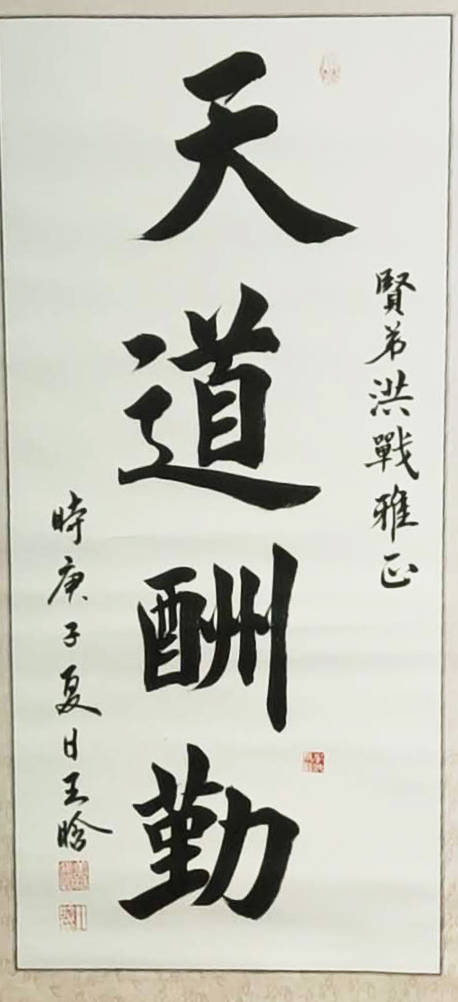 賢弟洪戰雅正
天道酬勤
時庚子夏日王晗